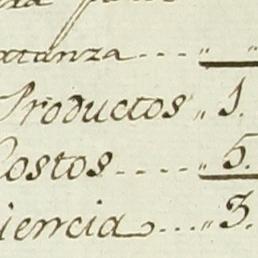 atanza ---- „ „
Productos „ 1.
Costos ---- „ 5.
iencia ---- „ 3.